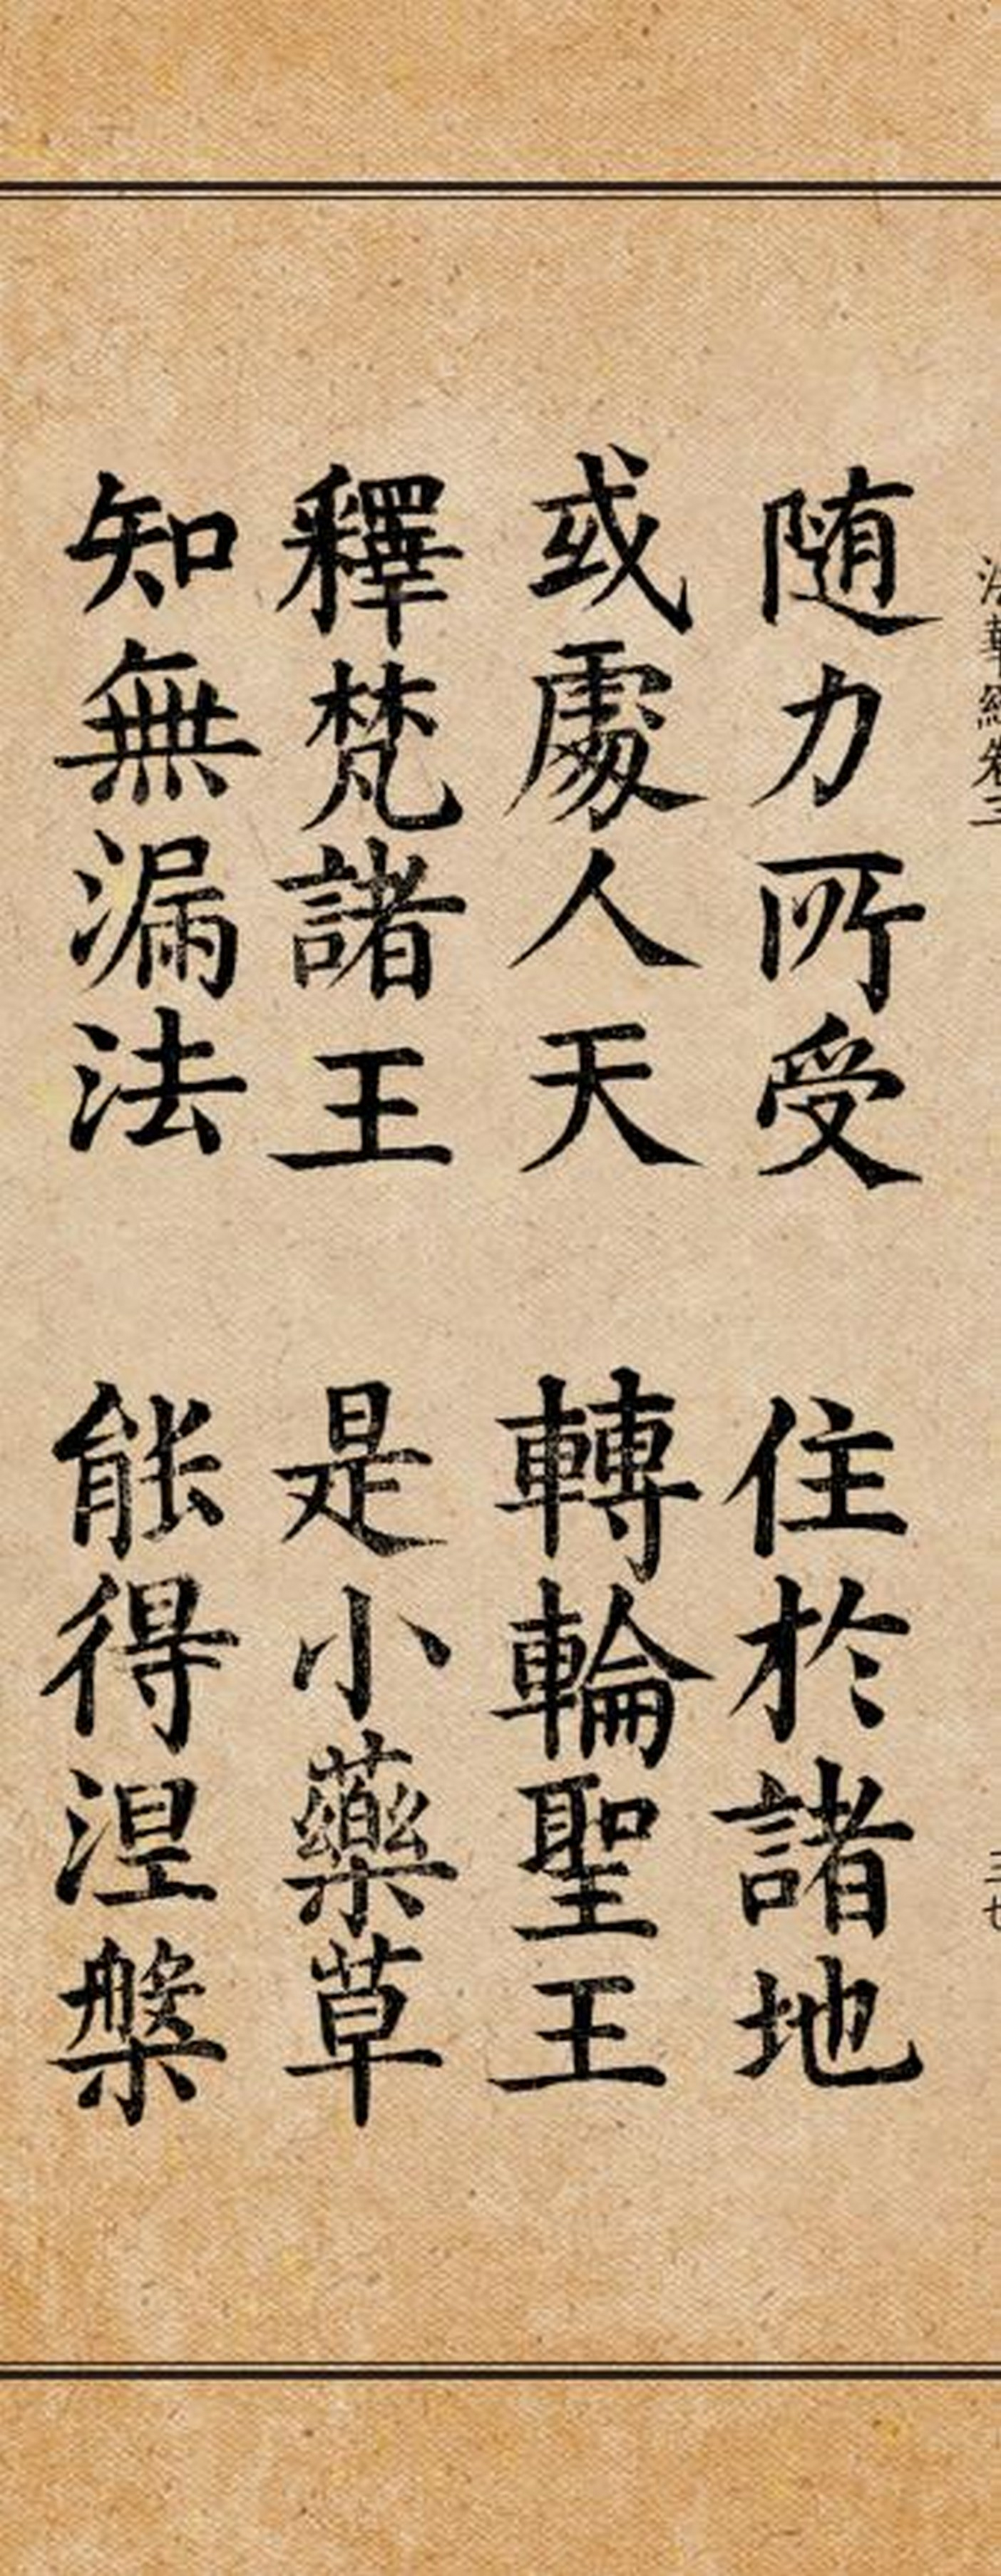 法華經卷三 三七
随力所受 住於諸地
或處人天 轉輪聖王
釋梵諸王 是小藥草
知無漏法 能得涅槃